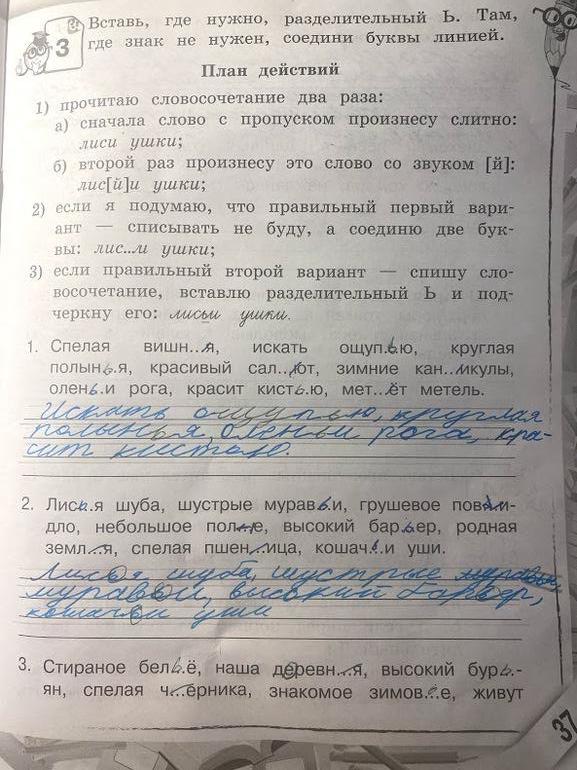 3
Вставь, где нужно, разделительный Ь. Там,
где знак не нужен, соедини буквы линией.
План действий
1) прочитаю словосочетание два раза:
а) сначала слово с пропуском произнесу слитно:
лиси ушки;
б) второй раз произнесу это слово со звуком [й]:
лис[й]и ушки;
2) если я подумаю, что правильный первый вари-
ант — списывать не буду, а соединю две бук-
вы: лис...и ушки;
3) если правильный второй вариант — спишу сло-
восочетание, вставлю разделительный Ь и под-
черкну его: лисьи ушки.
1. Спелая вишн...я, искать ощуп.ью, круглая
полынь.я, красивый сал...ют, зимние кан...икулы,
олень.и рога, красит кисть.ю, мет...ёт метель.
Искать ощупью, круглая
полынья, оленьи рога, кра-
сит кистью.
2. Лис.ь.я шуба, шустрые муравь.и, грушевое пов...и-
дло, небольшое пол...е, высокий барь.ер, родная
земл...я, спелая пшен...ица, кошачь.и уши.
Лисья шуба, шустрые
муравьи, высокий барьер,
кошачьи уши
3. Стираное бель.ё, наша деревн...я, высокий бурь.-
ян, спелая ч...ерника, знакомое зимов...е, живут
37